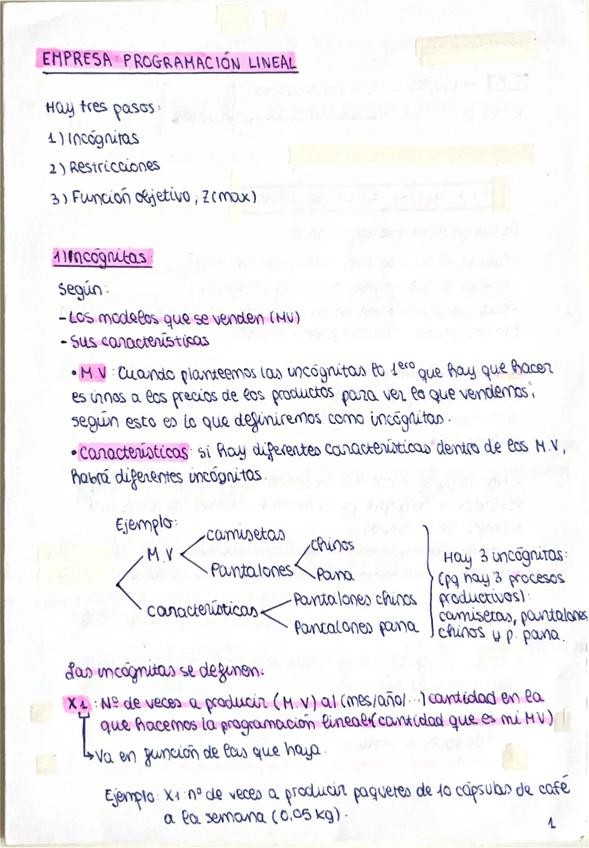 EMPRESA: PROGRAMACIÓN LINEAL
Hay tres pasos:
1) Incógnitas
2) Restricciones
3) Función objetivo, Z(max)
1) Incógnitas:
Según:
- Los modelos que se venden (MV)
- Sus características
• M V: Cuando planteemos las incógnitas lo 1ero que hay que hacer
es irnos a los precios de los productos para ver lo que vendemos,
según esto es lo que definiremos como incógnitas.
• Características: si hay diferentes características dentro de los M.V,
habrá diferentes incógnitas.
Ejemplo:
M.V
camisetas
Pantalones
chinos
Pana
características
Pantalones chinos
Pantalones pana
Hay 3 incógnitas:
(pq hay 3 procesos
productivos):
camisetas, pantalones
chinos y p. pana.
Las incógnitas se definen:
X1: Nº de veces a producir (M.V) al (mes/año/...) cantidad en la
que hacemos la programación lineal (cantidad que es mi MV)
Va en función de las que haya.
Ejemplo: X1: nº de veces a producir paquetes de 10 cápsulas de café
a la semana (0,05 kg).
1